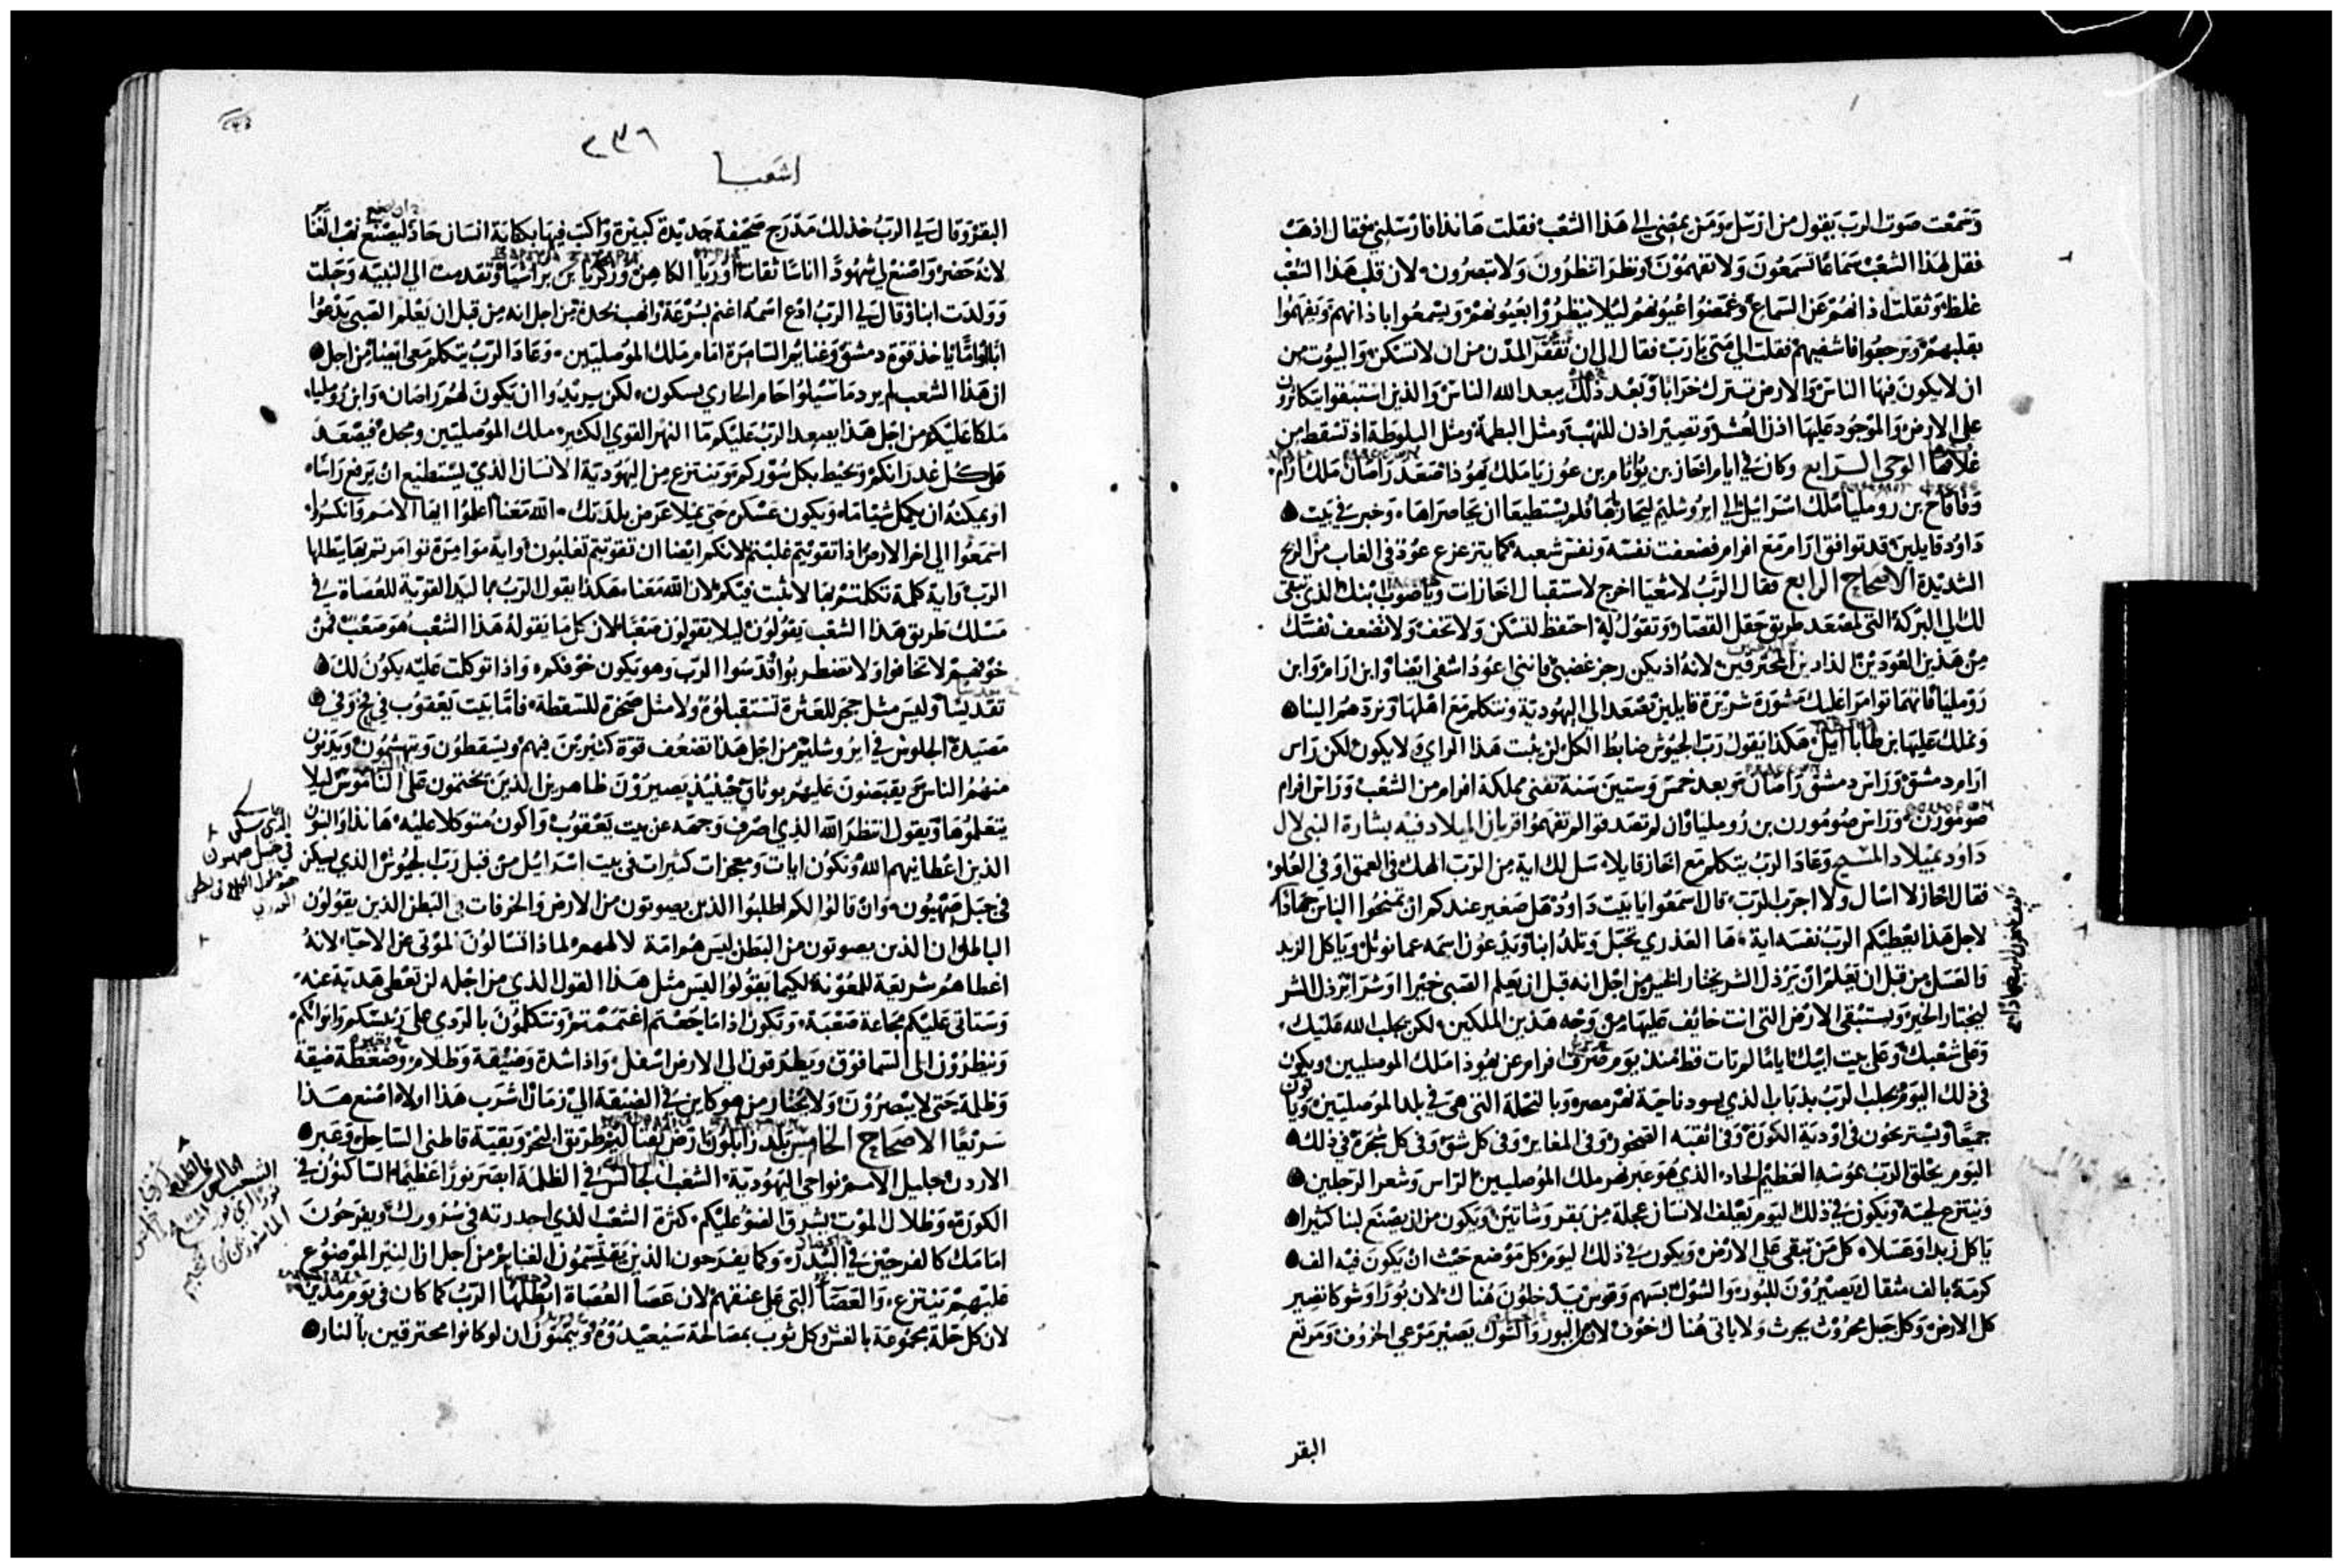 وسمعت صوت الرب يقول من ارسل ومن يمضي الى هذا الشعب فقلت هانذا فارسلني فقال اذهب
فقل لهذا الشعب سماعًا تسمعون ولا تفهمون ونظرا تنظرون ولا تبصرون لان قلب هذا الشعب
غلظ وثقلت اذانهم عن السماع وغمضوا عيونهم ليلا ينظروا بعيونهم ويسمعوا باذانهم ويفهموا
بقلبهم ويرجعوا فاشفيهم فقلت الى متى يا رب فقال الى ان تقفر المدن من ان لا تسكن والبيوت من
ان لا يكون فيها الناس والارض تترك خرابا وبعد ذلك يبعد الله الناس والذين استبقوا يتكاثرون
على الارض والموجود عليها اذن العشر وتصير اذن للنهب ومثل البطمة ومثل البلوطة اذ تسقط من
غلافها الوحي الرابع وكان في ايام احاز بن يوثام بن عوزيا ملك يهوذا صعد راصان ملك ارام
وفاقاح بن روميليا ملك اسرائيل الى ايروشليم ليحارباها فلم يستطيعا ان يحاصراها وخبر في بيت
داود قايلين قد توافق ارام مع افرام فضعفت نفسه ونفس شعبه كما يتزعزع عود في الغاب من الريح
الشديدة الاصحاح الرابع فقال الرب لاشعيا اخرج لاستقبال احاز انت وياصوب ابنك الذي تبقى
لك الى البركة التي لمصعد طريق حقل القصار وتقول له احتفظ لتسكن ولا تخف ولا تضعف نفسك
من هذين العودين الذين المحترقين لانه اذ يكن رجز غضبي فانني اعود اشفي ايضا وابن ارام وابن
روميليا فانهما توامرا عليك مشورة شريرة قايلين نصعد الى اليهودية ونتكلم مع اهلها ونردهم الينا
ونملك عليها ابن طابااييل هكذا يقول رب الجيوش ضابط الكل لن يثبت هذا الراي ولا يكون لكن راس
ارام دمشق وراس دمشق راصان وبعد خمس وستين سنة تفنى مملكة افرام من الشعب وراس افرام
صومورن وراس صومورن بن روميليا وان لم تصدقوا لم تفهموا قربان الميلاد فيه بشارة النبي لال
داود بميلاد المسيح وعاد الرب يتكلم مع احاز قايلا سل لك اية من الرب الهك في العمق او في العلو
فقال احاز لا اسال ولا اجرب الرب قال اسمعوا يا بيت داود هل صغير عندكم ان تمنحوا الناس جهادا
لاجل هذا يعطيكم الرب نفسه اية ها العذري تحبل وتلد ابنا وتدعون اسمه عمانوئل وياكل الزبد
والعسل من قبل ان يعلم ان يرذل الشر يختار الخير من اجل انه قبل ان يعلم الصبي خيرا او شرا يرذل الشر
ليختار الخير وستبقى الارض التي انت خائف عليها من وجه هذين الملكين لكن يجلب الله عليك
وعلى شعبك وعلى بيت ابيك اياما لم تات قط منذ يوم صرف افرام عن يهوذا ملك الموصليين ويكون
في ذلك اليوم يجلب الرب بذبابا الذي يسود ناحية نهر مصر وبالنحلة التي هي في بلد الموصليين وياتون
جميعًا ويستريحون في اودية الكورة وفي اثقبة الصخور وفي المغاير وفي كل شق وفي كل شجرة في ذلك
اليوم يحلق الرب بموسه العظيم الحاد الذي هو عبر نهر ملك الموصليين الراس وشعر الرجلين
وينتزع لحيته ويكون في ذلك اليوم يعلف الانسان عجلة من بقر وشاتين ويكون من ان يصنع لبنا كثيرا
ياكل زبدا وعسلا كل من تبقى على الارض ويكون في ذلك اليوم كل موضع حيث ان يكون فيه الف
كرمة بالف مثقال يصيرون للبور والشوك بسهم وقوس يدخلون هناك لان بورًا وشوكا تصير
كل الارض وكل جبل محروث يحرث ولا ياتي هناك خوف لان البور والشوك يصير مرعي الخروف ومرتع
البقر
٢٣٦
اشعيا
البقر وقال لي الرب خذ لك مدرج صحيفة جديدة كبيرة واكتب فيها بكتابة انسان حاد ليصنع نهب الغنا
لانه حضر واصنع لي شهودًا اناسًا ثقات اوريا الكاهن وزكريا بن براشيا وتقدمت الى النبيه وحبلت
وولدت ابنا وقال لي الرب ادع اسمه اغنم بسرعة وانهب بحدة من اجل انه من قبل ان يعلم الصبي يدعوا
ابا او امًّا ياخذ قوة دمشق وغنايم السامرة امام ملك الموصليين وعاد الرب يتكلم معي ايضا من اجل
ان هذا الشعب لم يرد ما سيلوا حام الجاري بسكون لكن يريدوا ان يكون لهم راصان وابن روميليا
ملكا عليكم من اجل هذا يصعد الرب عليكم ما النهر القوي الكثير ملك الموصليين ومجده فيصعد
على كل غدرانكم ويحيط بكل سوركم وينتزع من اليهودية الانسان الذي يستطيع ان يرفع راسًا
او يمكنه ان يكمل شيا ما ويكون عسكره حتى يملا عرض بلدتك الله معنا اعلموا ايها الامم وانكسروا
اسمعوا الى اخر الارض اذا تقويتم غلبتم لانكم ايضا ان تقويتم تغلبون واية موامرة توامرتم بها يبطلها
الرب واية كلمة تكلمتم بها لا تثبت فيكم لان الله معنا هكذا يقول الرب باليد القوية للعصاة في
مسلك طريق هذا الشعب يقولون ليلا يقولون صعبًا لان كل ما يقوله هذا الشعب هو صعب فمن
خوفهم لا تخافوا ولا تضطربوا قدسوا الرب وهو يكون خوفكم واذا توكلت عليه يكون لك
تقديسًا وليس مثل حجر للعثرة تستقبلوه ولا مثل صخرة للسقطة فاما بيت يعقوب في فخ وفي
مصيدة الجلوس في ايروشليم من اجل هذا تضعف قوة كثيرين فيهم ويسقطون ويتهشمون ويدنون
منهم الناس يقبضون عليهم بوثاق حينيذ يصيرون ظاهرين الذين يختمون على الناموس ليلا
يتعلموها ويقول انتظر الله الذي اصرف وجهه عن بيت يعقوب واكون متوكلا عليه هانذا والبنون
الذين اعطانيهم الله وتكون ايات ومعجزات كثيرات في بيت اسرائيل من قبل رب الجيوش الذي يسكن
في جبل صهيون وان قالوا لكم اطلبوا الذين يصوتون من الارض والخرفات في البطن الذين يقولون
الباطل وان الذين يصوتون من البطن ليس هم امة لالههم لماذا تسالون الموتى عن الاحياء لانه
اعطاهم شريعة للمعونة لكيما يقولوا ليس مثل هذا القول الذي من اجله لن تعطى هدية عنه
وستاتي عليكم مجاعة صعبة وتكون اذا ما جعتم اغتممتم وتتكلمون بالردي على رئيسكم وابوانكم
وينظرون الى السما فوق ويطرقون الى الارض اسفل واذا شدة وضيقة وظلام وضغطة ضيقة
وظلمة حتى لا يبصرون ولا يحتار من هو كاين في الضيقة الى زمان اشرب هذا اولا اصنع هذا
سريعًا الاصحاح الخامس بلد زابلون وارض نفتاليم طريق البحر وبقية قاطني الساحل وعبر
الاردن جليل الامم نواحي اليهودية الشعب الجالس في الظلمة ابصر نورًا عظيما الساكنون في
الكورة وظلال الموت يشرق الضو عليكم كثرة الشعب الذي احدرته في سرورك ويفرحون
امامك كالفرحين في البيدر وكما يفرحون الذين يقتسمون الغنايم من اجل ان النير الموضوع
عليهم ينتزع والعصا التي على عنقهم لان عصا العصاة ابطلها الرب كما كان في يوم مدين
لان كل حلة مجموعة بالغش وكل ثوب بمصالحة سيعيدوه ويتمنون ان لو كانوا محترقين بالنار